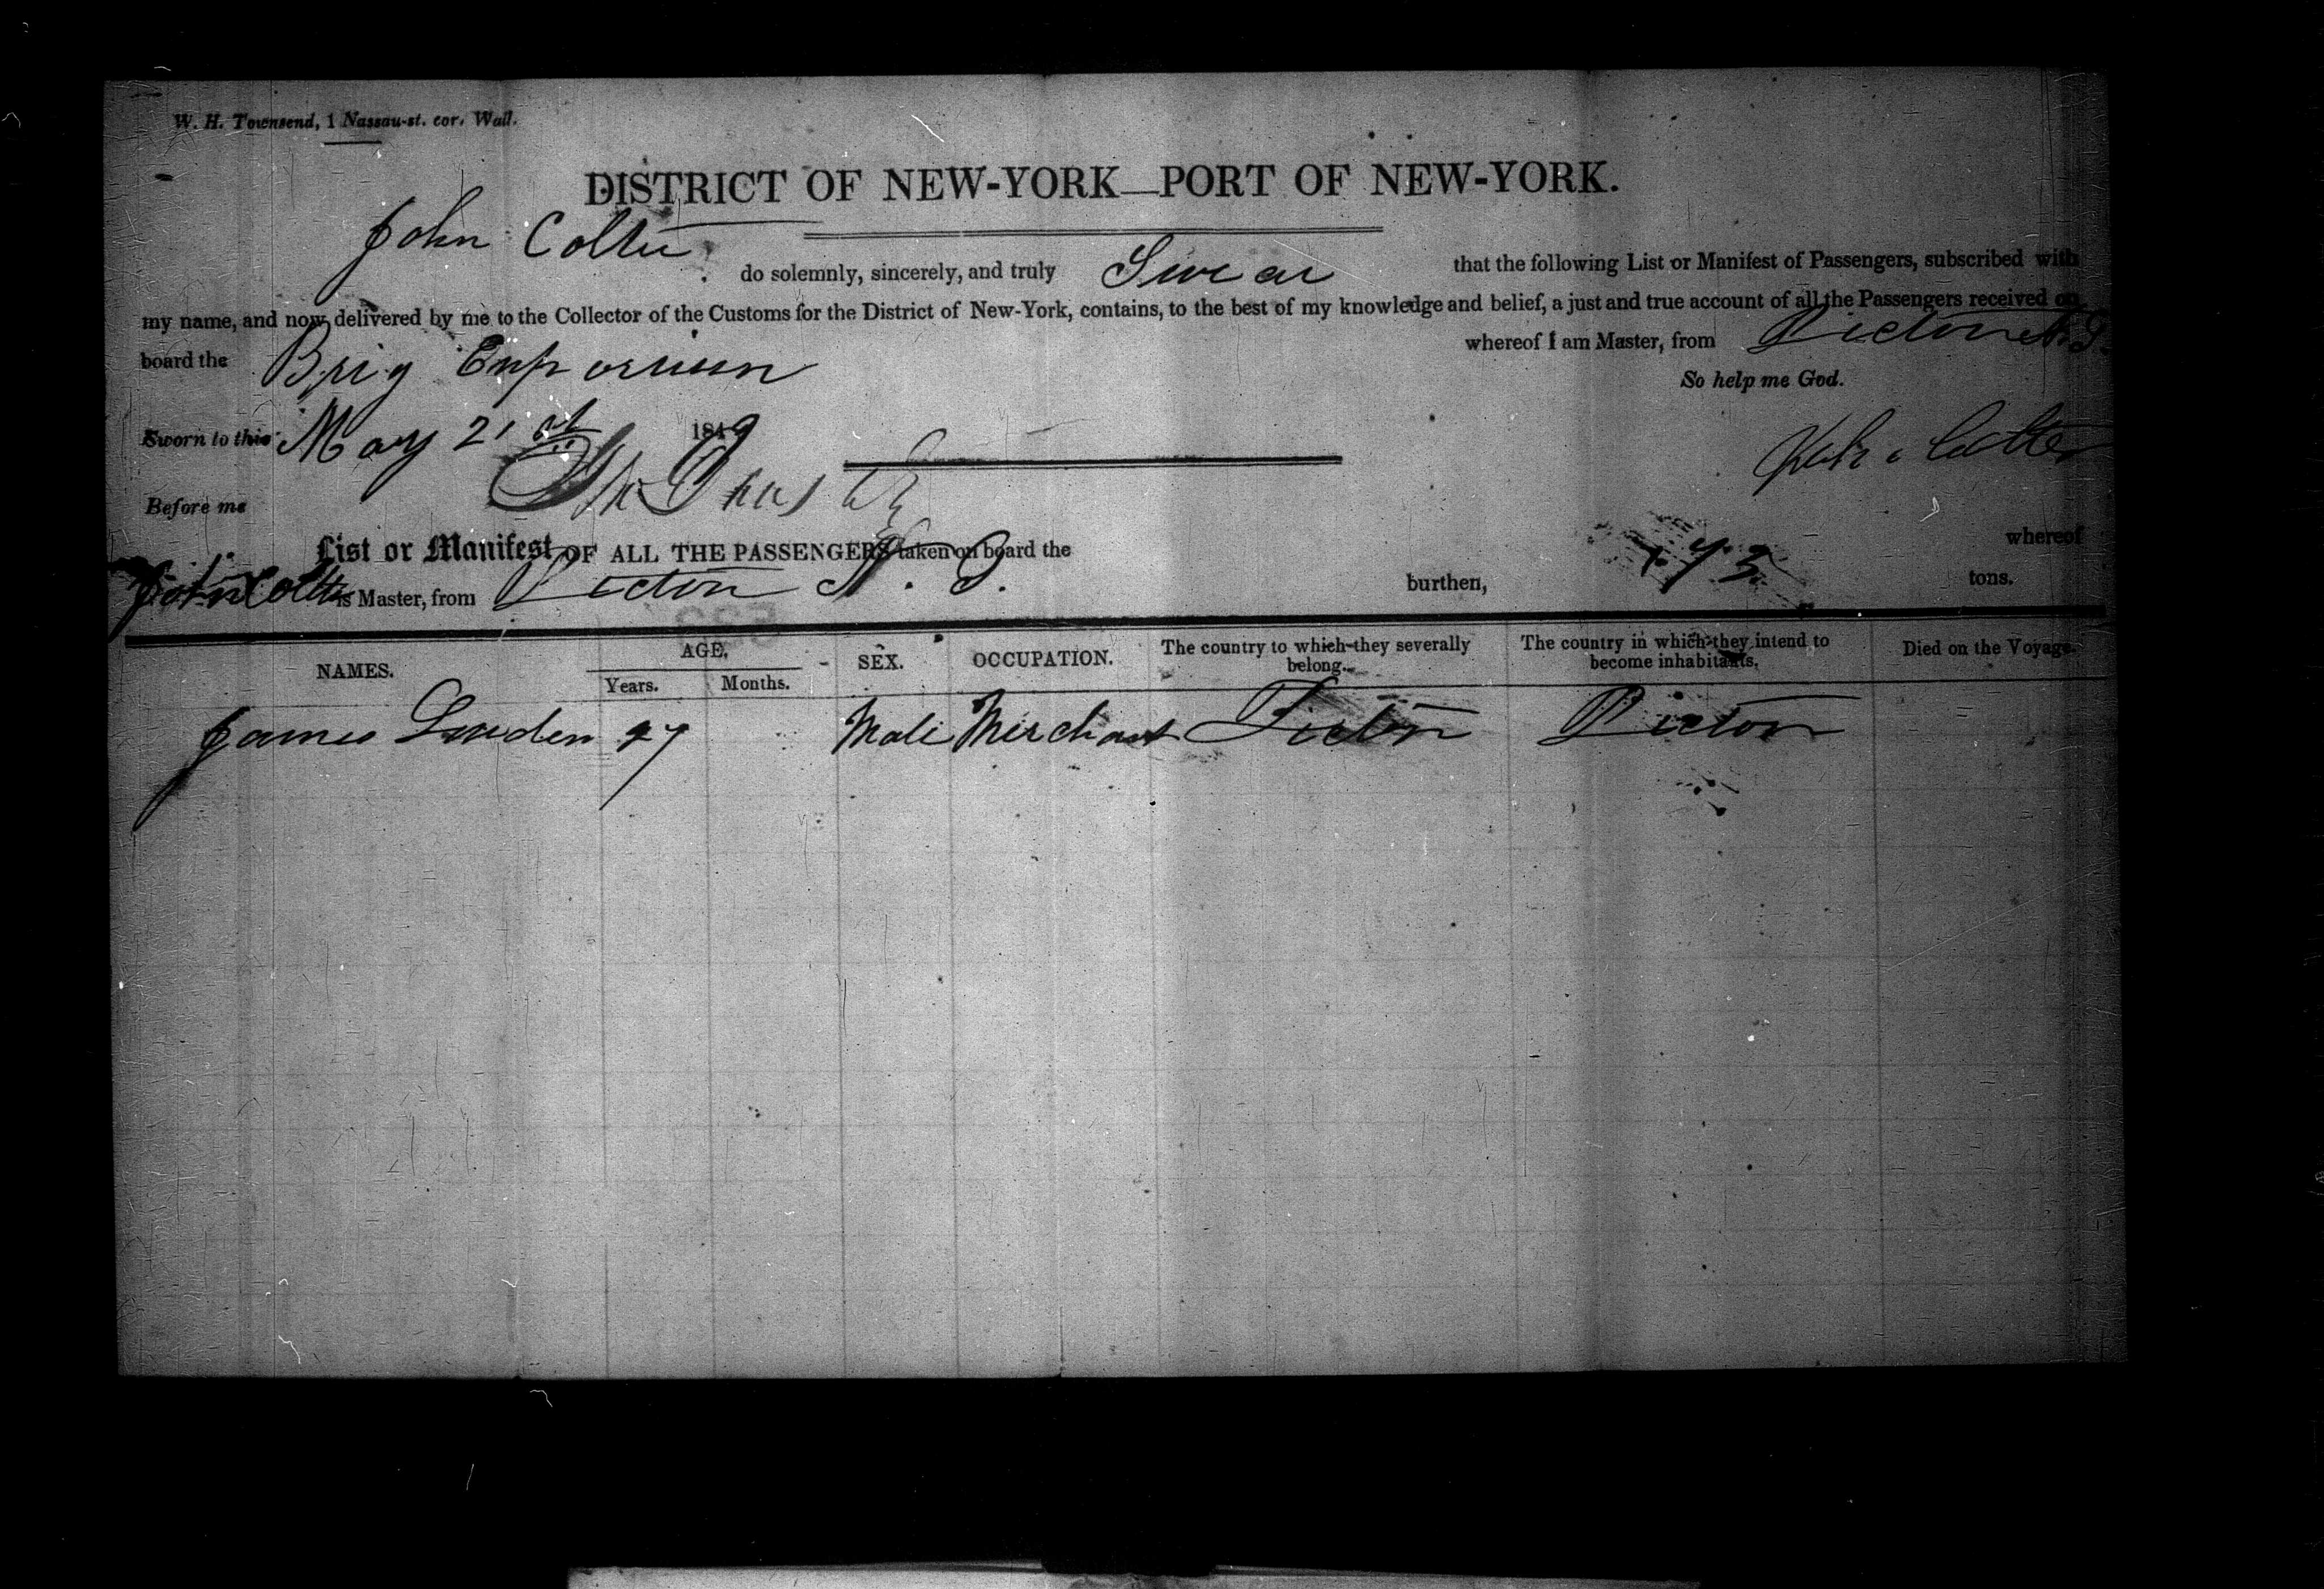 W. H. Townsend, 1 Nassau-st. cor. Wall.
DISTRICT OF NEW-YORK—PORT OF NEW-YORK.
John Colter do solemnly, sincerely, and truly Swear that the following List or Manifest of Passengers, subscribed with
my name, and now delivered by me to the Collector of the Customs for the District of New-York, contains, to the best of my knowledge and belief, a just and true account of all the Passengers received on
board the Brig Emporium whereof I am Master, from Picton N. S.
So help me God.
Sworn to this May 21st 1849
John Colter
Before me
List or Manifest OF ALL THE PASSENGERS taken on board the whereof
John Colter is Master, from Picton N. S. burthen, tons.
NAMES. AGE. Years. Months. SEX. OCCUPATION. The country to which they severally belong. The country in which they intend to become inhabitants. Died on the Voyage.
James Male Merchant Picton Picton